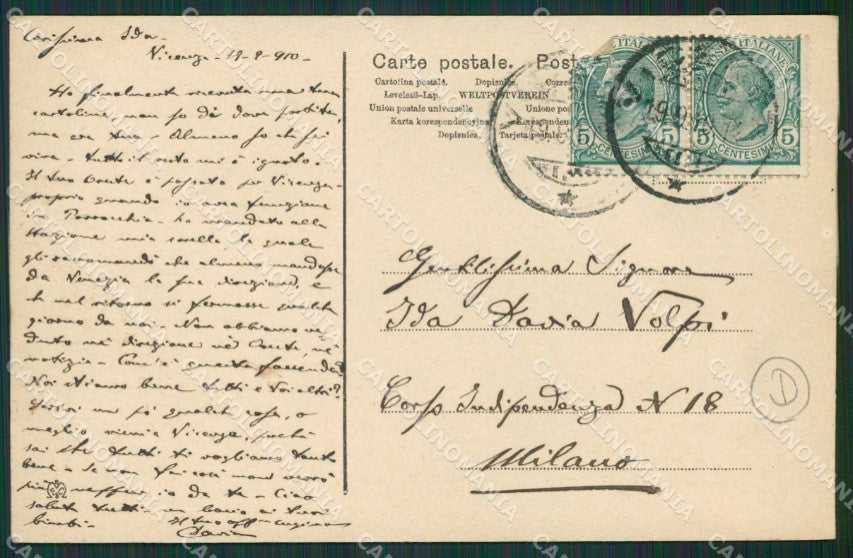 Carissima Ida -
Vicenza - 19-9-910 -
Ho finalmente ricevuta una tua
cartolina, non so da dove partita,
ma era tua - Almeno so che sei
viva - tutto il resto mi è ignoto -
Il tuo Conte è passato per Vicenza -
proprio quando io avevo funzione
in Parrocchia - ho mandato alla
Stazione mia sorella, la quale
gli raccomandò che almeno mandasse
da Venezia la sua direzione, e
che nel ritorno si fermasse qualche
giorno da noi - Non abbiamo ve-
duto nè direzione nè Conte, nè
notizia - Com'è questa faccenda?
Noi stiamo bene tutti e Voi altri?
Scrivi un pò qualche cosa, o
meglio vieni a Vicenza, perchè
sai che tutti ti vogliamo tanto
bene - se non fai così non vorrò
più da te - Ciao
saluta tutti un bacio ai tuoi
bimbi -
Il tuo aff. cugino
Davia
Carte postale. Post
Cartolina postale. Dopisnike. Corre
Levelező-Lap. WELTPOSTVEREIN
Union postale universelle Unione po
Karta korespondencyjna Korespondenz
Dopisnica. Tarjeta postale.
POSTE ITALIANE
5 5
CENTESIMI
19.9
Gentilissima Signora
Ida Davia Volpi
Corso Indipendenza N 18
Milano
D
CARTOLINOMANIA